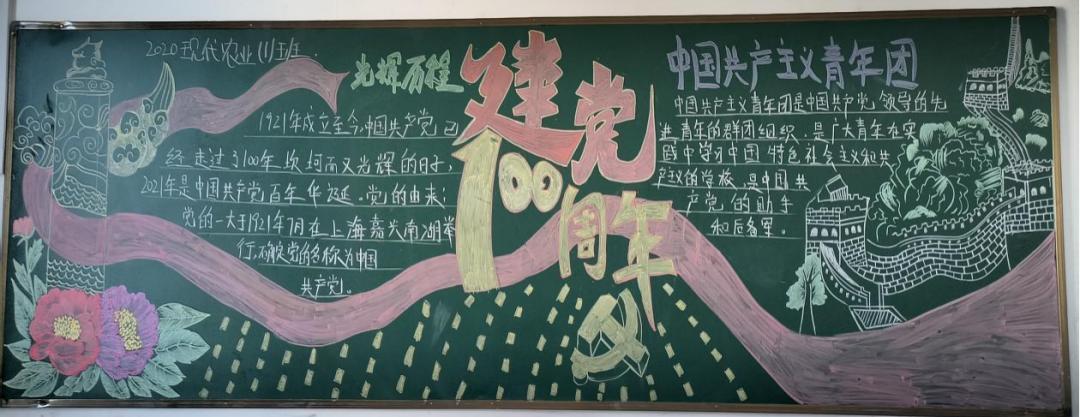 2020现代农业(1)班
光辉历程
1921年成立至今,中国共产党已
经走过了100年坎坷而又光辉的日子,
2021年是中国共产党百年华诞。党的由来:
党的一大于1921年7月在上海嘉兴南湖举
行,确般党的名称为中国
共产党。
建党
100周年
中国共产主义青年团
中国共产主义青年团是中国共产党领导的先
进青年的群团组织,是广大青年在实
践中学习中国特色社会主义和共
产主义的学校,是中国共
产党的助手
和后备军。